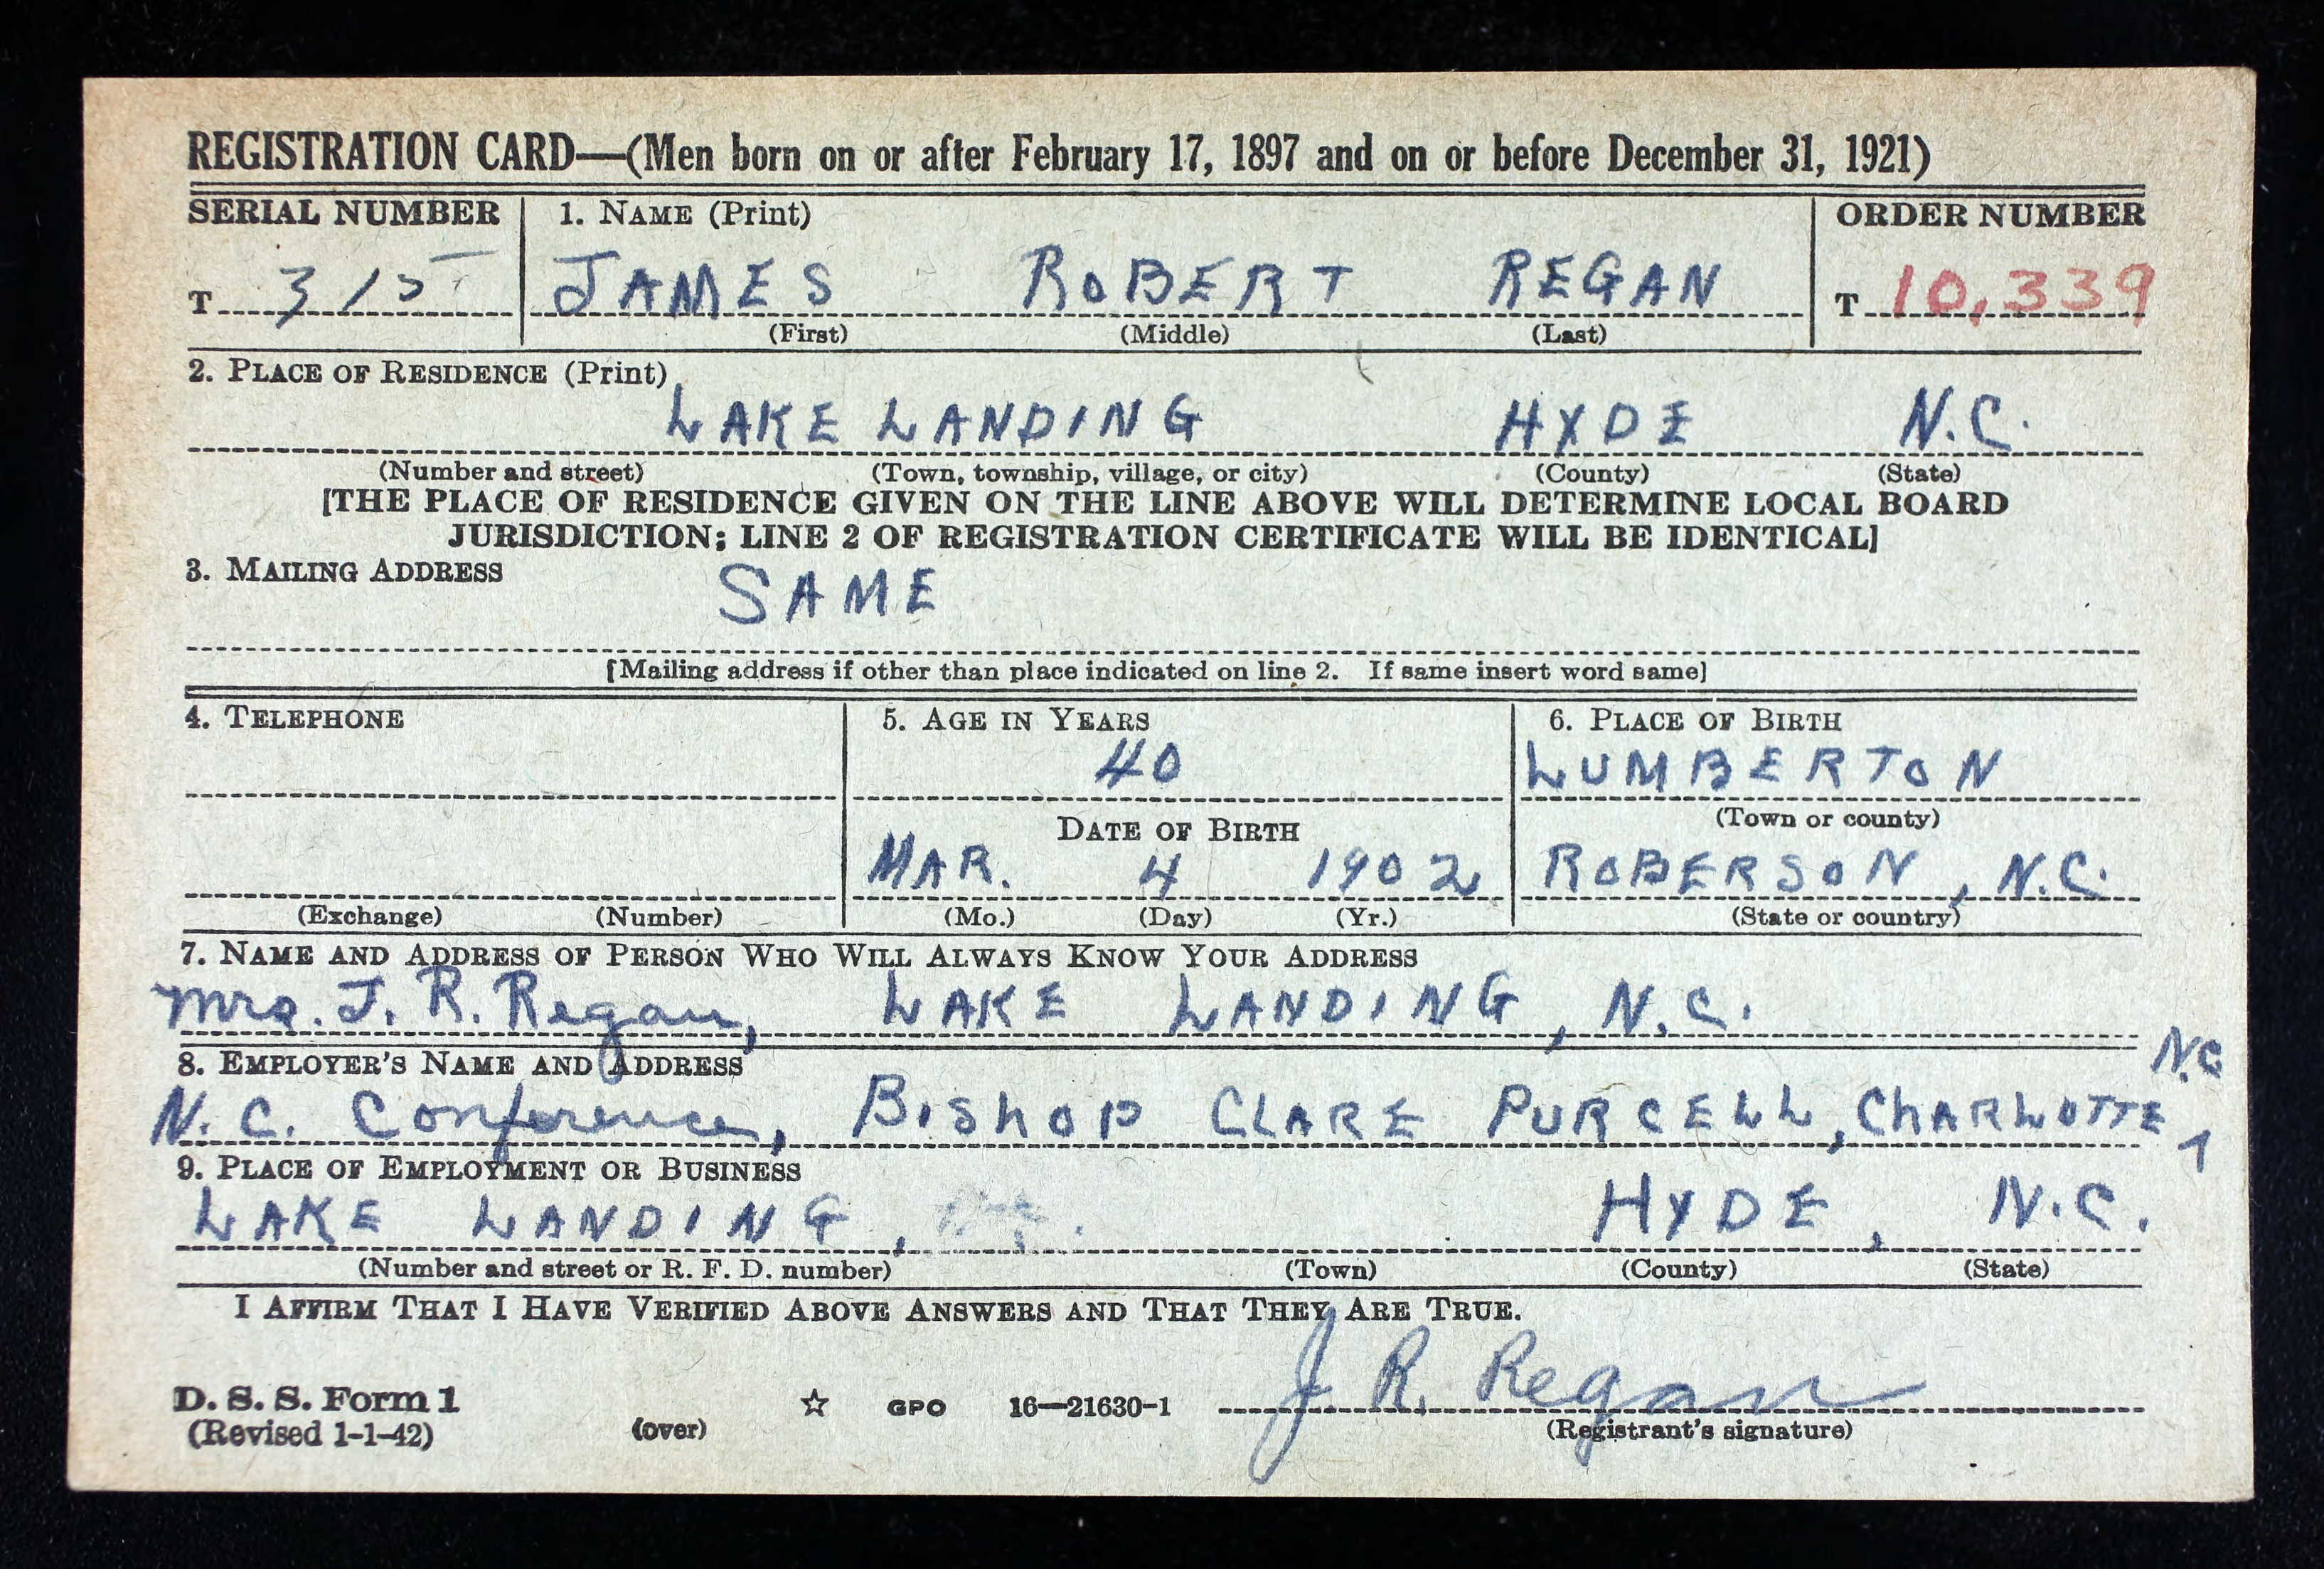 REGISTRATION CARD—(Men born on or after February 17, 1897 and on or before December 31, 1921)
SERIAL NUMBER 1. NAME (Print) ORDER NUMBER
T 315 JAMES ROBERT REGAN T 10,339
(First) (Middle) (Last)
2. PLACE OF RESIDENCE (Print)
LAKE LANDING HYDE N.C.
(Number and street) (Town, township, village, or city) (County) (State)
[THE PLACE OF RESIDENCE GIVEN ON THE LINE ABOVE WILL DETERMINE LOCAL BOARD
JURISDICTION; LINE 2 OF REGISTRATION CERTIFICATE WILL BE IDENTICAL]
3. MAILING ADDRESS
SAME
[Mailing address if other than place indicated on line 2. If same insert word same]
4. TELEPHONE 5. AGE IN YEARS 6. PLACE OF BIRTH
40 LUMBERTON
(Town or county)
DATE OF BIRTH
MAR. 4 1902 ROBERSON, N.C.
(Exchange) (Number) (Mo.) (Day) (Yr.) (State or country)
7. NAME AND ADDRESS OF PERSON WHO WILL ALWAYS KNOW YOUR ADDRESS
Mrs. J. R. Regan, LAKE LANDING, N.C.
8. EMPLOYER'S NAME AND ADDRESS
N.C. Conference, BISHOP CLARE PURCELL, CHARLOTTE, N.C
9. PLACE OF EMPLOYMENT OR BUSINESS
LAKE LANDING, HYDE, N.C.
(Number and street or R. F. D. number) (Town) (County) (State)
I AFFIRM THAT I HAVE VERIFIED ABOVE ANSWERS AND THAT THEY ARE TRUE.
J. R. Regan
D. S. S. Form 1 ☆ GPO 16—21630-1
(Revised 1-1-42) (over) (Registrant's signature)